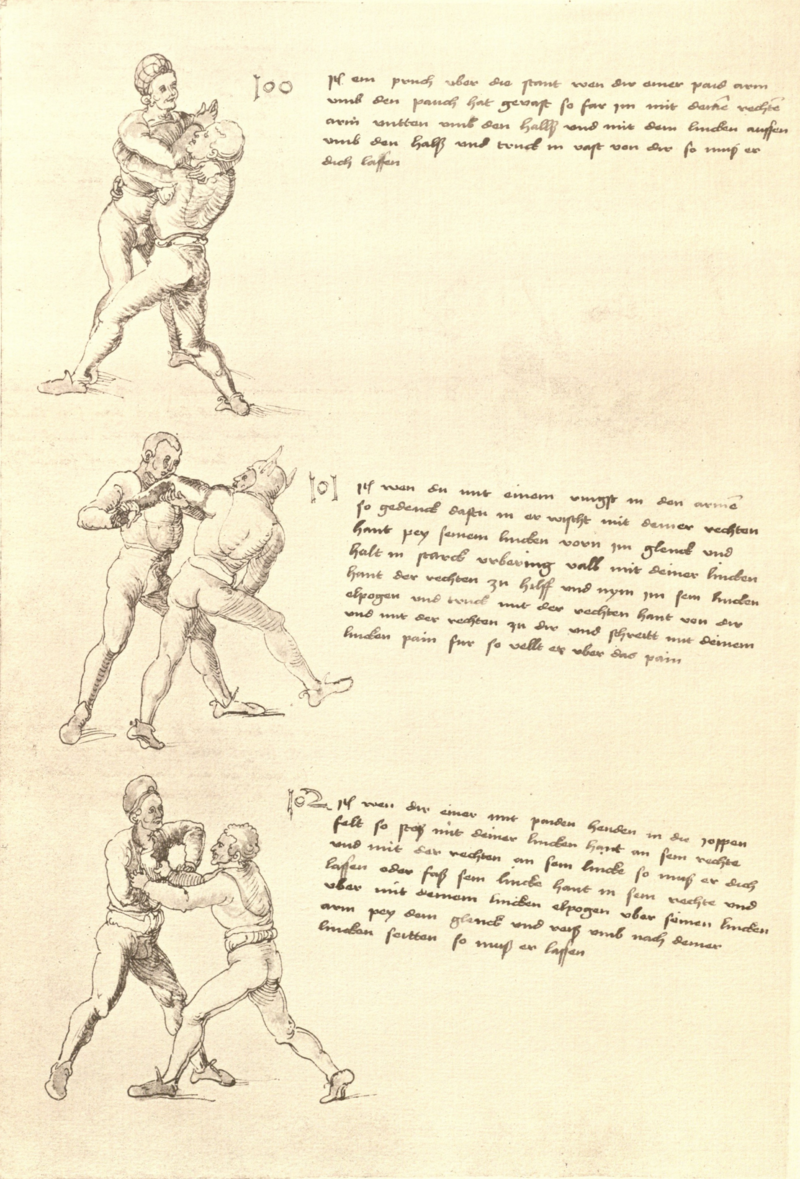 100
Jtl ein pruch vber die stant wen dir einer paid arm
vmb den pauch hat gevast so far im mit deine rechte
arm vntten vmb den halß vnd mit dem lincken aussen
vmb den halß vnd truck in vast von dir so muß er
dich lassen
101
Jtl wen du mit einem ringst in den arme
so gedenck dastu in er wischt mit deiner rechten
hant pey seinem lincken vorn im glenck vnd
halt in starck vrbering vall mit deiner lincken
hant der rechten zu hilff vnd nym im sein lincken
elpogen vnd truck mit der rechten hant von dir
vnd mit der rechten zu dir vnd schreitt mit deinem
lincken pain fur so vellt er vber das pain
102
Jtl wen dir einer mit paiden henden in die joppen
felt so stoß mit deiner lincken hant an sein rechte
vnd mit der rechten an sein lincke so muß er dich
lassen oder faß sein lincke hant in sein rechte vnd
vber mit deinem lincken elpogen vber seinen lincken
arm pey dem glenck vnd reiß vmb nach deiner
lincken seitten so muß er lassen